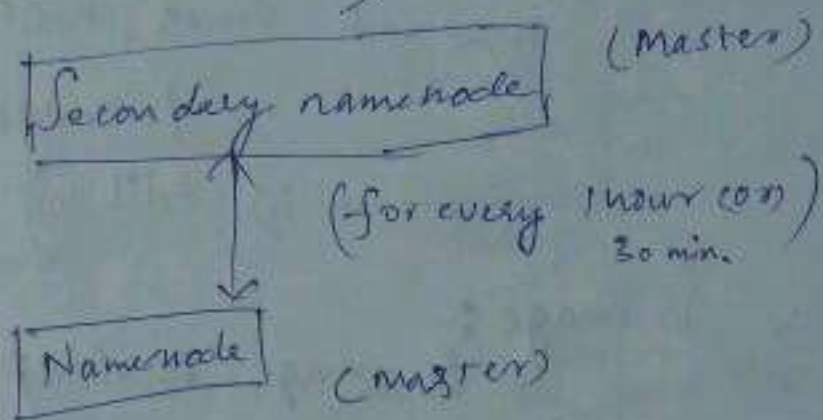 Secondery namenode (Master)
(for every 1 hour (or)
30 min.)
Namenode (master)